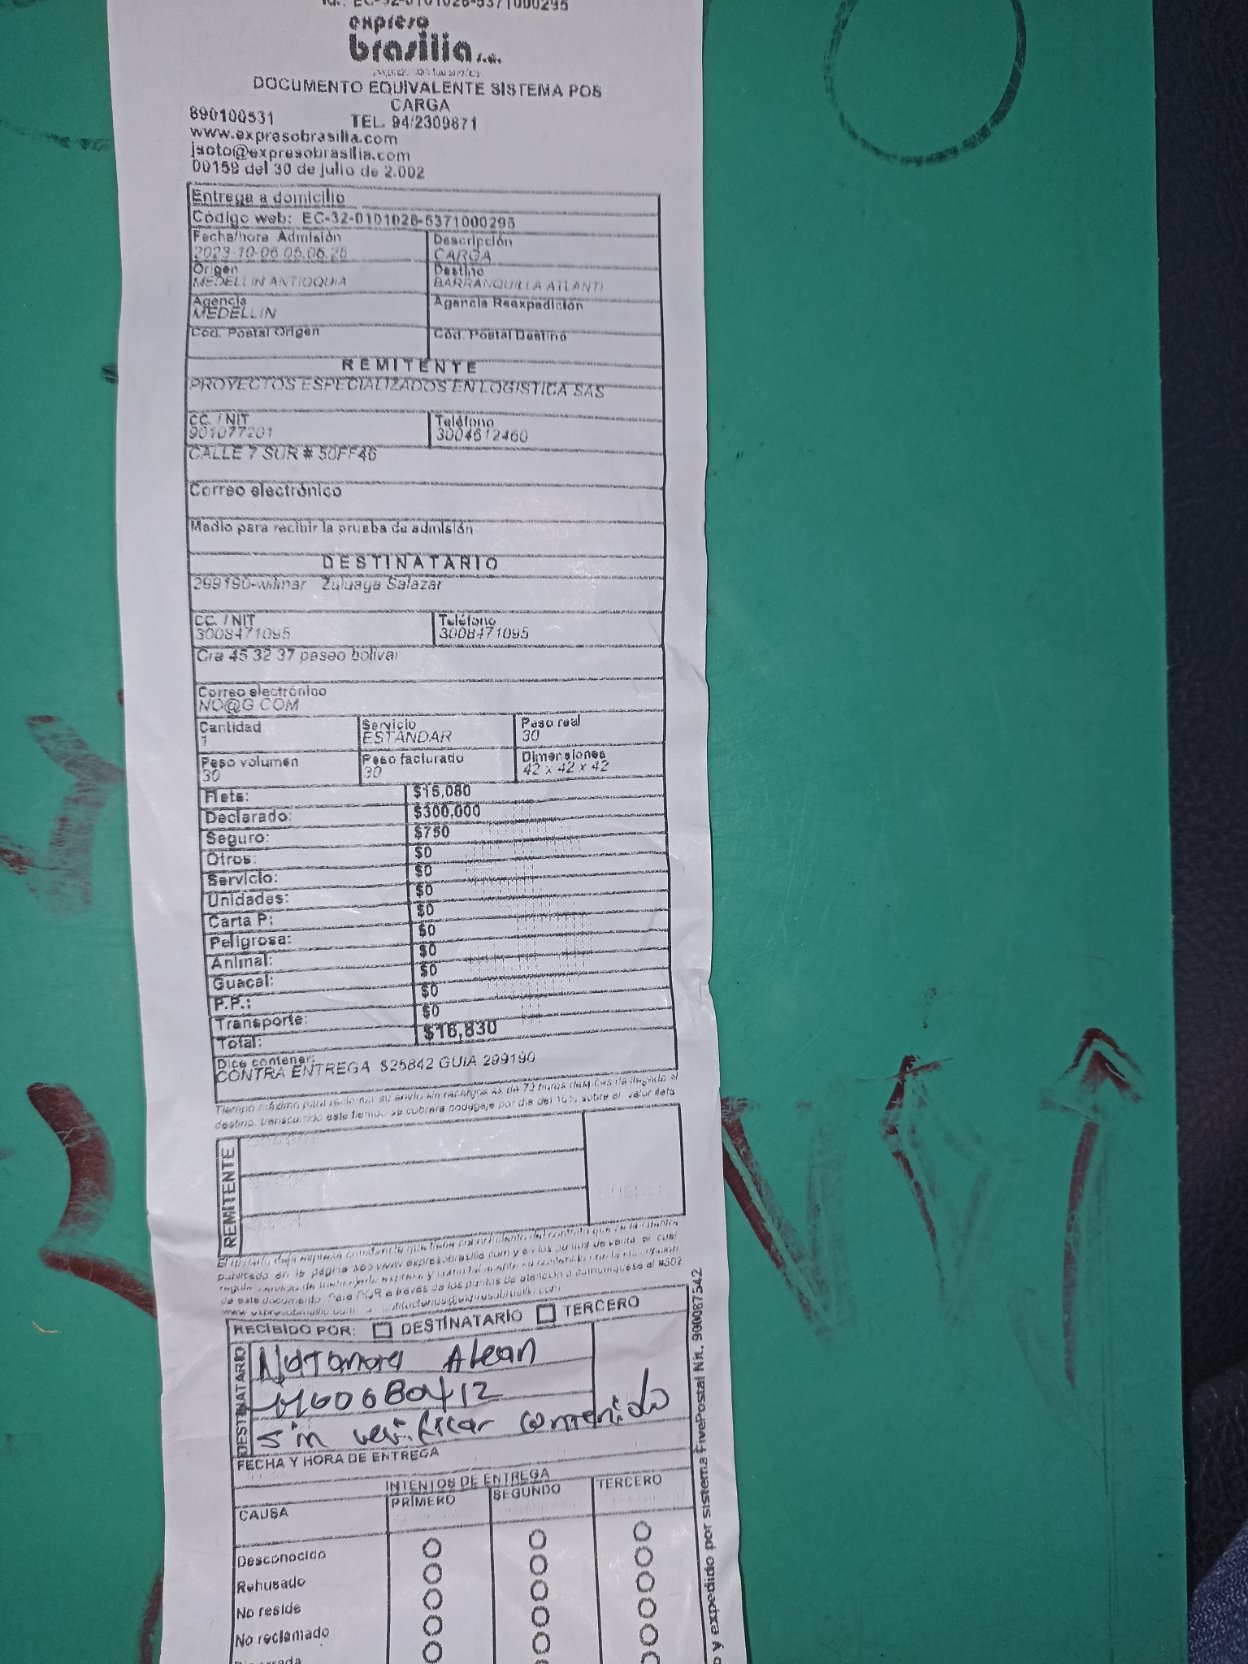 Id.: EC-32-0101026-5371000295
expreso
brasilia s.a.
DOCUMENTO EQUIVALENTE SISTEMA POS
CARGA
890100531 TEL. 94/2309871
www.expresobrasilia.com
jsoto@expresobrasilia.com
00158 del 30 de julio de 2.002
Entrega a domicilio
Código web: EC-32-0101026-5371000295
Fecha/hora Admisión Descripción
2023-10-06 05.06.26 CARGA
Origen Destino
MEDELLIN ANTIOQUIA BARRANQUILLA ATLANTI
Agencia Agencia Reexpedición
MEDELLIN
Cod. Postal Origen Cód. Postal Destino
REMITENTE
PROYECTOS ESPECIALIZADOS EN LOGISTICA SAS
CC. / NIT Teléfono
901077201 3004612460
CALLE 7 SUR # 50FF46
Correo electrónico
Medio para recibir la prueba de admisión
DESTINATARIO
299190-wilmar Zuluaga Salazar
CC. / NIT Teléfono
3008471095 3008471095
Cra 45 32 37 paseo bolivar
Correo electrónico
NO@G.COM
Cantidad Servicio Peso real
1 ESTANDAR 30
Peso volumen Peso facturado Dimensiones
30 30 42 x 42 x 42
Flete: $15,080
Declarado: $300,000
Seguro: $750
Otros: $0
Servicio: $0
Unidades: $0
Carta P: $0
Peligrosa: $0
Animal: $0
Guacal: $0
P.P.: $0
Transporte: $0
Total: $16,830
Dice contener:
CONTRA ENTREGA $25842 GUIA 299190
Tiempo máximo para reclamar su envío sin recargos es de 72 horas después de llegado al
destino, transcurrido este tiempo se cobrara bodegaje por día del 10% sobre el valor flete
REMITENTE
publicado en la página web www.expresobrasilia.com y en los puntos de venta, el cual
de este documento. Para PQR a través de los puntos de atención o comuníquese al #502
RECIBIDO POR: DESTINATARIO TERCERO
DESTINATARIO
Alean
sin verificar contenido
FECHA Y HORA DE ENTREGA
INTENTOS DE ENTREGA
CAUSA PRIMERO SEGUNDO TERCERO
Desconocido
Rehusado
No reside
No reclamado
o y expedido por sistema FivePostal Nit. 900087542